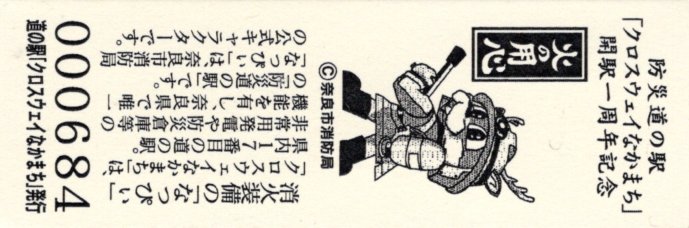 防災道の駅
「クロスウェイなかまち」
開駅一周年記念
火の用心
©奈良市消防局
消火装備の「なっぴぃ」
「クロスウェイなかまち」は、
県内17番目の道の駅。
非常用発電や防災倉庫等の
機能を有し、奈良県で唯一
の「防災道の駅」です。
「なっぴぃ」は、奈良市消防局
の公式キャラクターです。
000684
道の駅「クロスウェイなかまち」発行